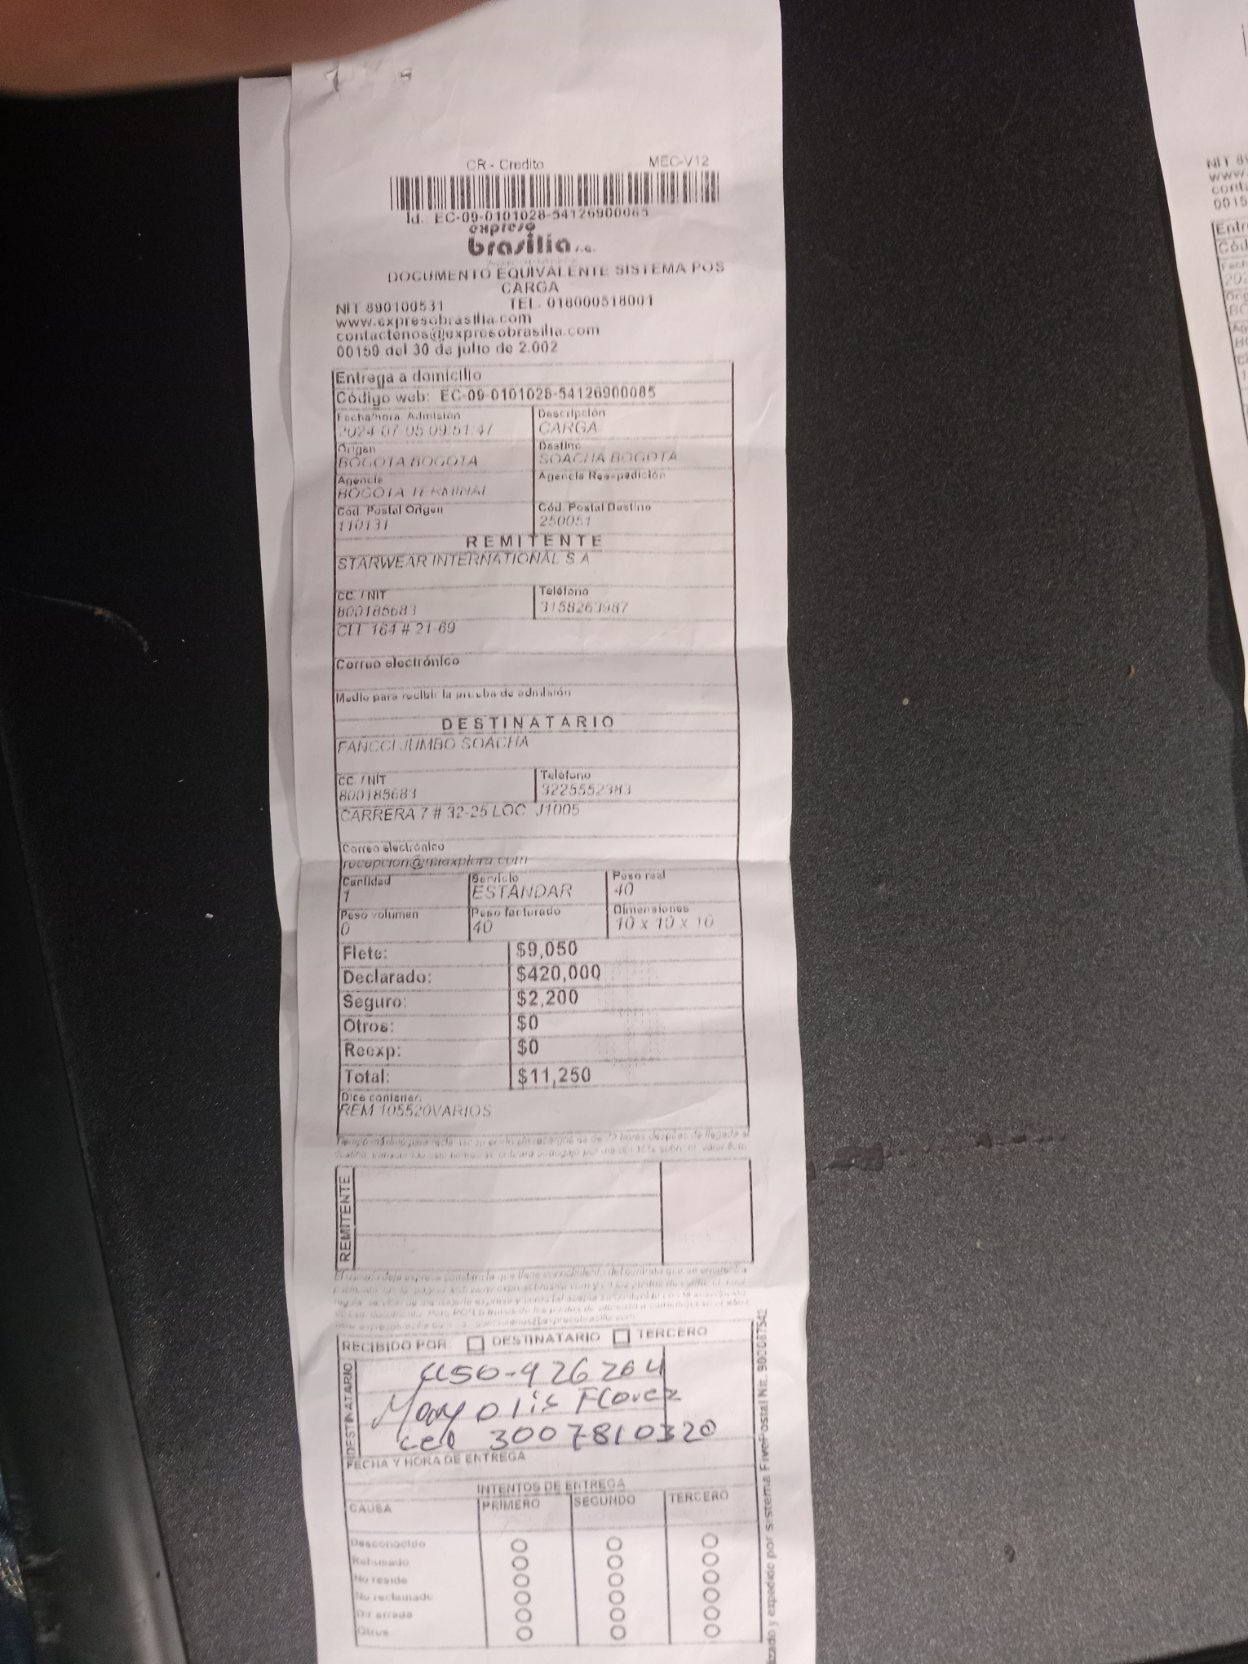 CR - Credito MEC-V12
Id.: EC-09-0101028-54126900065
expreso
brasilia s.a.
DOCUMENTO EQUIVALENTE SISTEMA POS
CARGA
NIT 890100531 TEL. 018000518001
www.expresobrasilia.com
contactenos@expresobrasilia.com
00150 del 30 de julio de 2.002
Entrega a domicilio
Código web: EC-09-0101028-54126900065
Fecha/hora Admisión Descripción
2024-07-05 09:51:47 CARGA
Origen Destino
BOGOTA BOGOTA SOACHA BOGOTA
Agencia Agencia Reexpedición
BOGOTA TERMINAL
Cód. Postal Origen Cód. Postal Destino
110131 250051
REMITENTE
STARWEAR INTERNATIONAL S A
CC. / NIT Teléfono
800185683 3158263987
CLL 164 # 21-69
Correo electrónico
Medio para recibir la prueba de admisión
DESTINATARIO
FANCCI JUMBO SOACHA
CC. / NIT Teléfono
800185683 3225552383
CARRERA 7 # 32-25 LOC J1005
Correo electrónico
Cantidad Servicio Peso real
1 ESTANDAR 40
Peso volumen Peso facturado Dimensiones
0 40 10 x 10 x 10
Flete: $9,050
Declarado: $420,000
Seguro: $2,200
Otros: $0
Reexp: $0
Total: $11,250
Dice contener:
REM 105520VARIOS
REMITENTE
RECIBIDO POR: DESTINATARIO TERCERO
DESTINATARIO
926264
Florez
cel 3007810320
FECHA Y HORA DE ENTREGA
INTENTOS DE ENTREGA
CAUSA PRIMERO SEGUNDO TERCERO
Desconocido
Rehusado
No reside
No reclamado
Dir errada
Otros
y expedido por sistema FivePostal Nit. 900087542
NIT
www.
0015